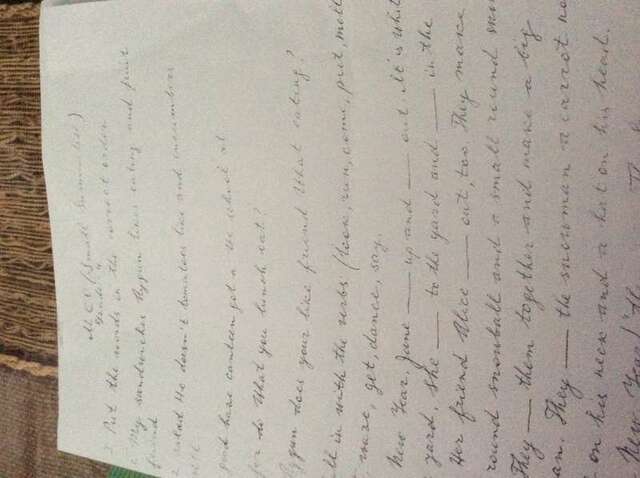 (Small Summative)
Put the words in the correct order
My sandwiches Aygun likes eating and fruit
friend
salad He doesn't tomatoes like and cucumbers
good have canteen got a We school at
for do What you lunch eat?
Aygun does your like friend What eating?
in with the verbs (look, run, come, put,
wave, get, dance, say.
New Year. Jane ___ up and ___ out. It is
yard. She ___ to the yard and ___ in the
Her friend Alice ___ out, too. They make
round snowball and a small round
They ___ them together and make a big
They ___ the snowman a carrot
on his neck and a hat on his head.
New Year!